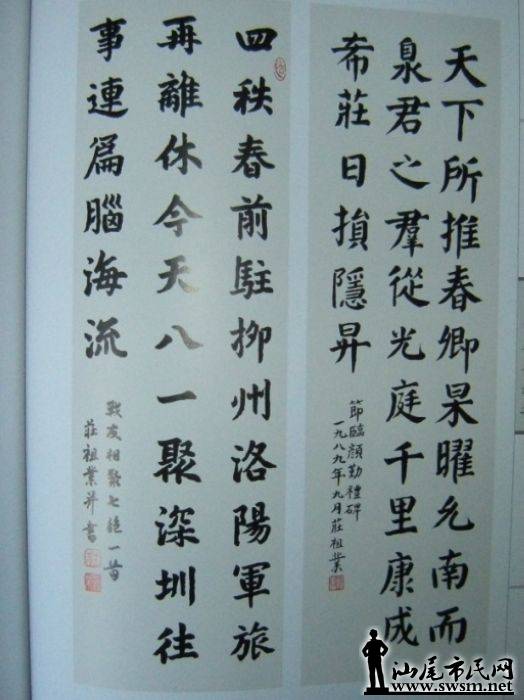 天下所推春卿杲曜允南而
泉君之羣從光庭千里康成
希莊日損隱昇
節臨顏勤禮碑
一九八九年九月莊祖業
四秩春前駐柳州洛陽軍旅
再離休今天八一聚深圳往
事連篇腦海流
戰友相聚七絕一首
莊祖業并書
汕尾市民网
www.swsm.net